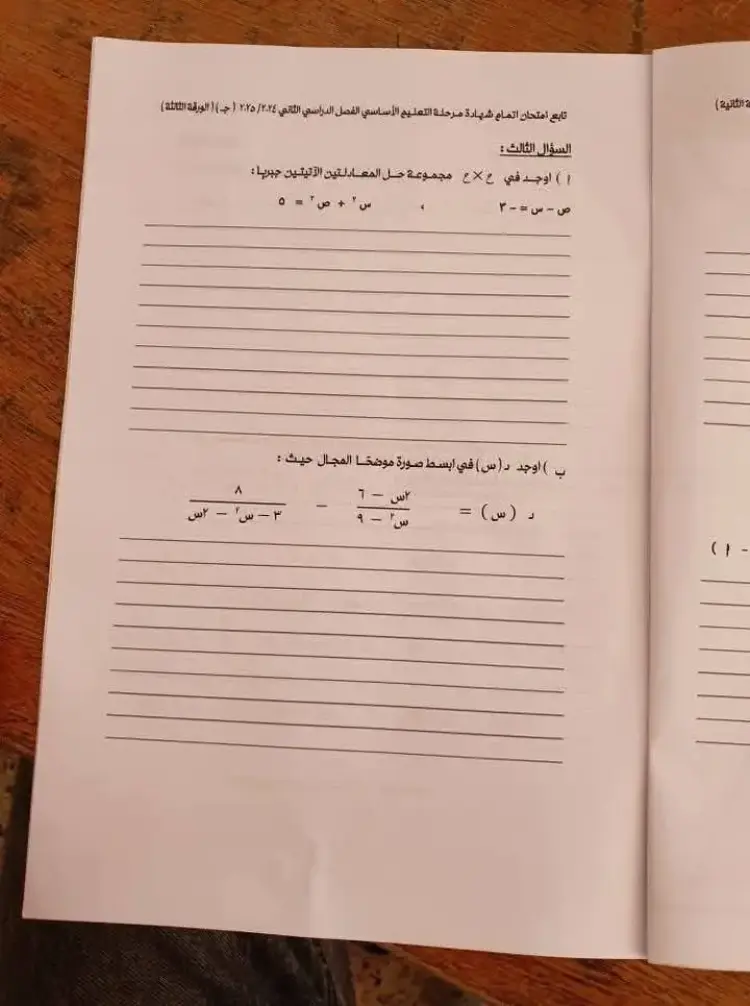 تابع امتحان اتمام شهادة مرحلة التعليم الأساسي الفصل الدراسي الثاني ٢٠٢٤/ ٢٠٢٥ ( جـ ) ( الورقة الثالثة )
السؤال الثالث :
ا ) اوجد في ح × ح مجموعة حل المعادلتين الآتيتين جبريا :
ص - س = - ٣ ، س٢ + ص٢ = ٥
ب ) اوجد د (س) في ابسط صورة موضحًا المجال حيث :
د (س) = (٢س - ٦)/(س٢ - ٩) - ٨/(٣ - س٢ - ٢س)
ة الثانية )
- ا )